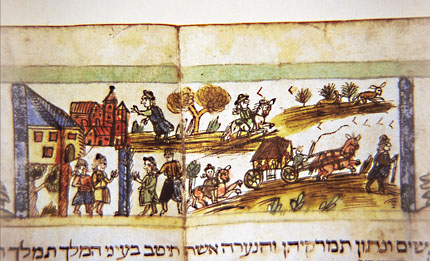 נשים ונתון תמרקיהן והנערה אשר תיטב בעיני המלך תמלך